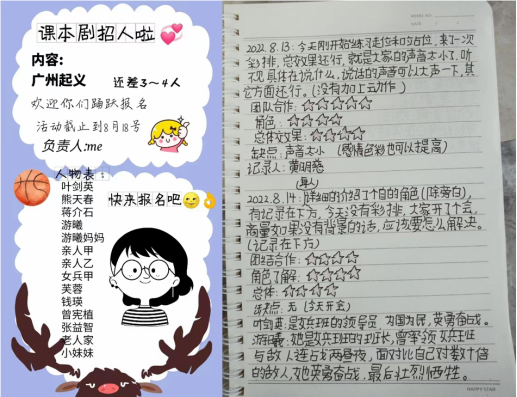 课本剧招人啦
内容:
广州起义
还差3~4人
欢迎你们踊跃报名
活动截止到8月18号
负责人:me
人物表:
叶剑英
熊天春
蒋介石
游曦
游曦妈妈
亲人甲
亲人乙
女兵甲
芙蓉
钱瑛
曾宪植
张益智
老人家
小妹妹
快来报名吧
2022.8.13:今天刚开始练习走位和站位,来了一次
彩排,总效果还行,就是大家的声音太小了,听
不见具体在说什么,说话的声音可以大声一下,其
它方面还行。(没有加上动作)
团队合作:☆☆☆☆☆
角色:☆☆☆☆
总体效果:☆☆☆☆
缺点:声音太小 (感情色彩也可以提高)
记录人:黄明慈
2022.8.14:详细的介绍了各自的角色(除旁白),
有记录在下方,今天没有彩排,大家开了个会,
商量如果没有背景的话,应该要怎么解决。
(记录在下方)
团结合作:☆☆☆☆
角色了解:☆☆☆☆☆
总体:☆☆☆☆
缺点:无(今天开会)
叶剑英:是女兵班的领导员,为国为民,英勇奋战。
游曦:她是女兵班的班长,曾率领女兵班
与敌人连战两昼夜,面对比自己对数十倍
的敌人,她英勇奋战,最后壮烈牺牲。